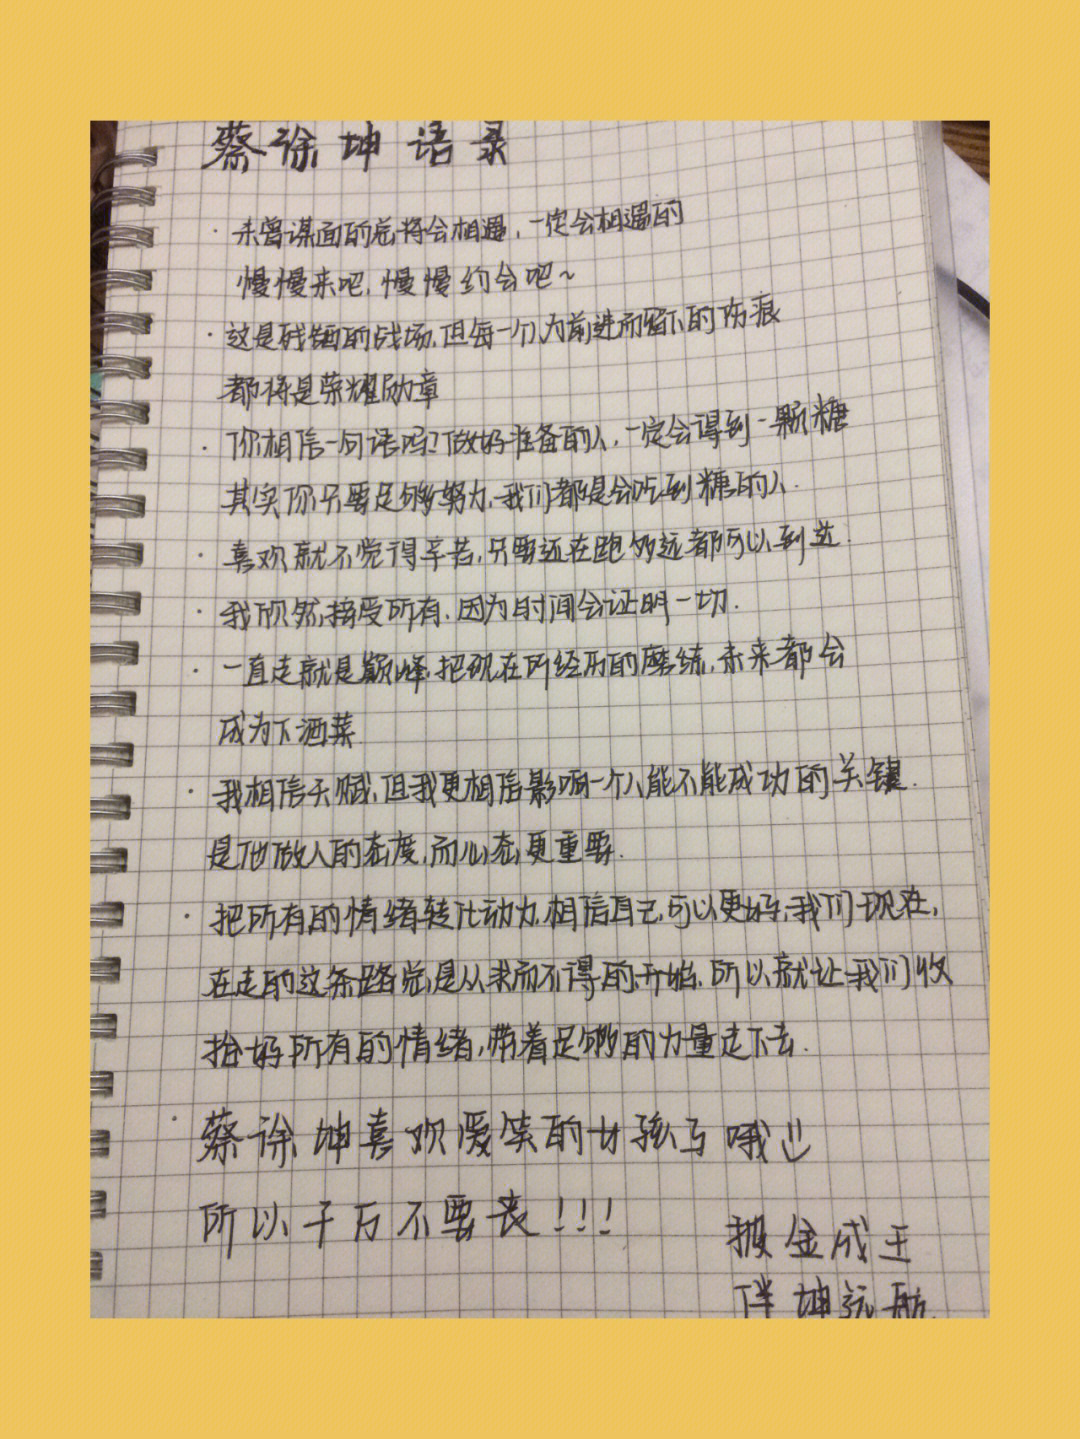 蔡徐坤语录
· 未曾谋面的总将会相遇，一定会相遇的
慢慢来吧，慢慢约会吧~
· 这是残酷的战场，但每一个为前进而留下的伤痕
都将是荣耀勋章
· 你相信一句话吗？做好准备的人，一定会得到一颗糖
其实你只要足够努力，我们都是会吃到糖的人.
· 喜欢就不觉得辛苦，只要还在跑多远都可以到达.
· 我欣然接受所有，因为时间会证明一切.
· 一直走就是巅峰，把现在所经历的磨练，未来都会
成为下酒菜
· 我相信天赋，但我更相信影响一个人能不能成功的关键.
是他做人的态度，而心态更重要.
· 把所有的情绪转化动力，相信自己，可以更好，我们现在，
在走的这条路，总是从求而不得的开始，所以就让我们收
拾好所有的情绪，带着足够的力量走下去.
· 蔡徐坤喜欢爱笑的女孩子哦
所以千万不要丧！！！
披金成王
伴坤远航